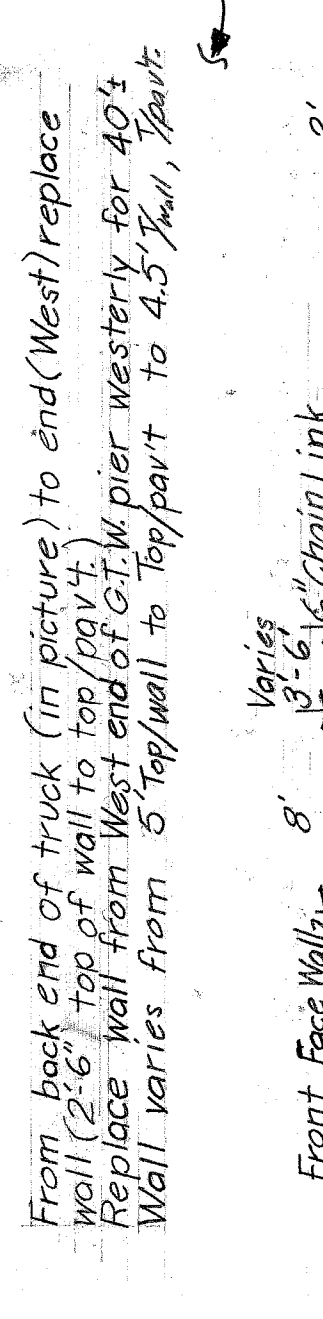 From back end of truck (in picture) to end (West) replace
wall (2'-6" top of wall to top/pav't.)
Replace wall from West end of G.T.W. pier westerly for 40'±
Wall varies from 5' Top/wall to Top/pav't to 4.5' T/wall, T/pav't.
Varies
8' 3'-6'
Front Face Wall 6" Chain Link